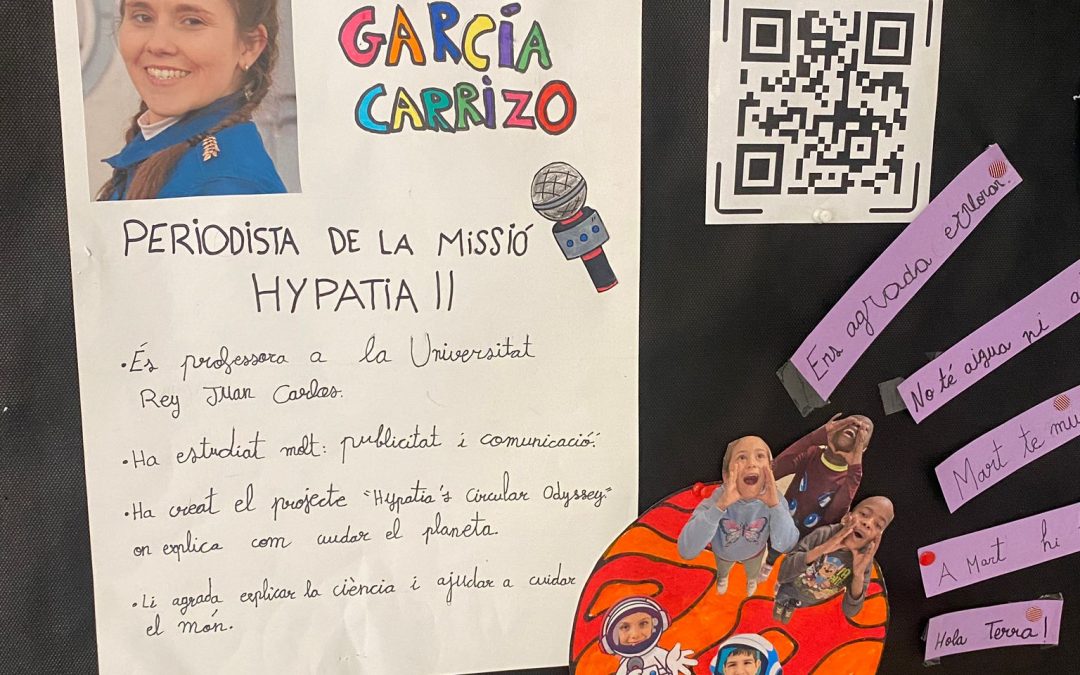 GARCÍA
CARRIZO
PERIODISTA DE LA MISSIÓ
HYPATIA II
•És professora a la Universitat
Rey Juan Carlos.
•Ha estudiat molt: publicitat i comunicació.
•Ha creat el projecte "Hypatia's Circular Odyssey"
on explica com cuidar el planeta.
•Li agrada explicar la ciència i ajudar a cuidar
el món.
Ens agrada explorar.
No té aigua ni a
Mart te mu
A Mart hi
Hola Terra!